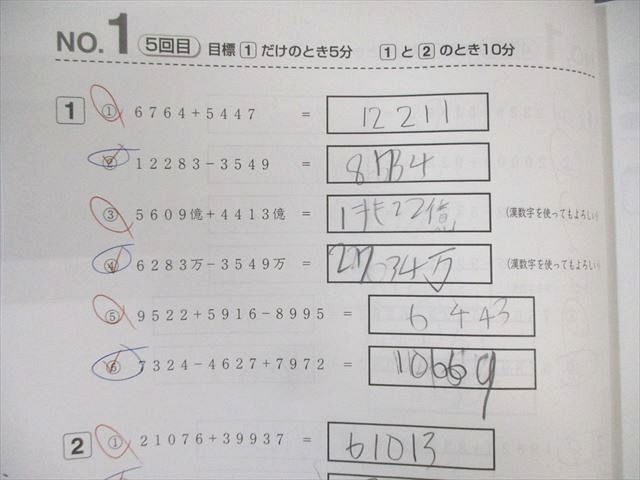 NO.1 5回目 目標 1 だけのとき5分 1 と 2 のとき10分
1 ① 6764+5447 = 12211
② 12283-3549 = 8734
③ 5609億+4413億 = 1兆22億 (漢数字を使ってもよろしい)
④ 6283万-3549万 = 2734万 (漢数字を使ってもよろしい)
⑤ 9522+5916-8995 = 6443
⑥ 7324-4627+7972 = 10669
2 ① 21076+39937 = 61013